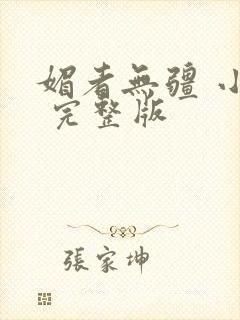 媚者無疆 小
完整版
張家坤